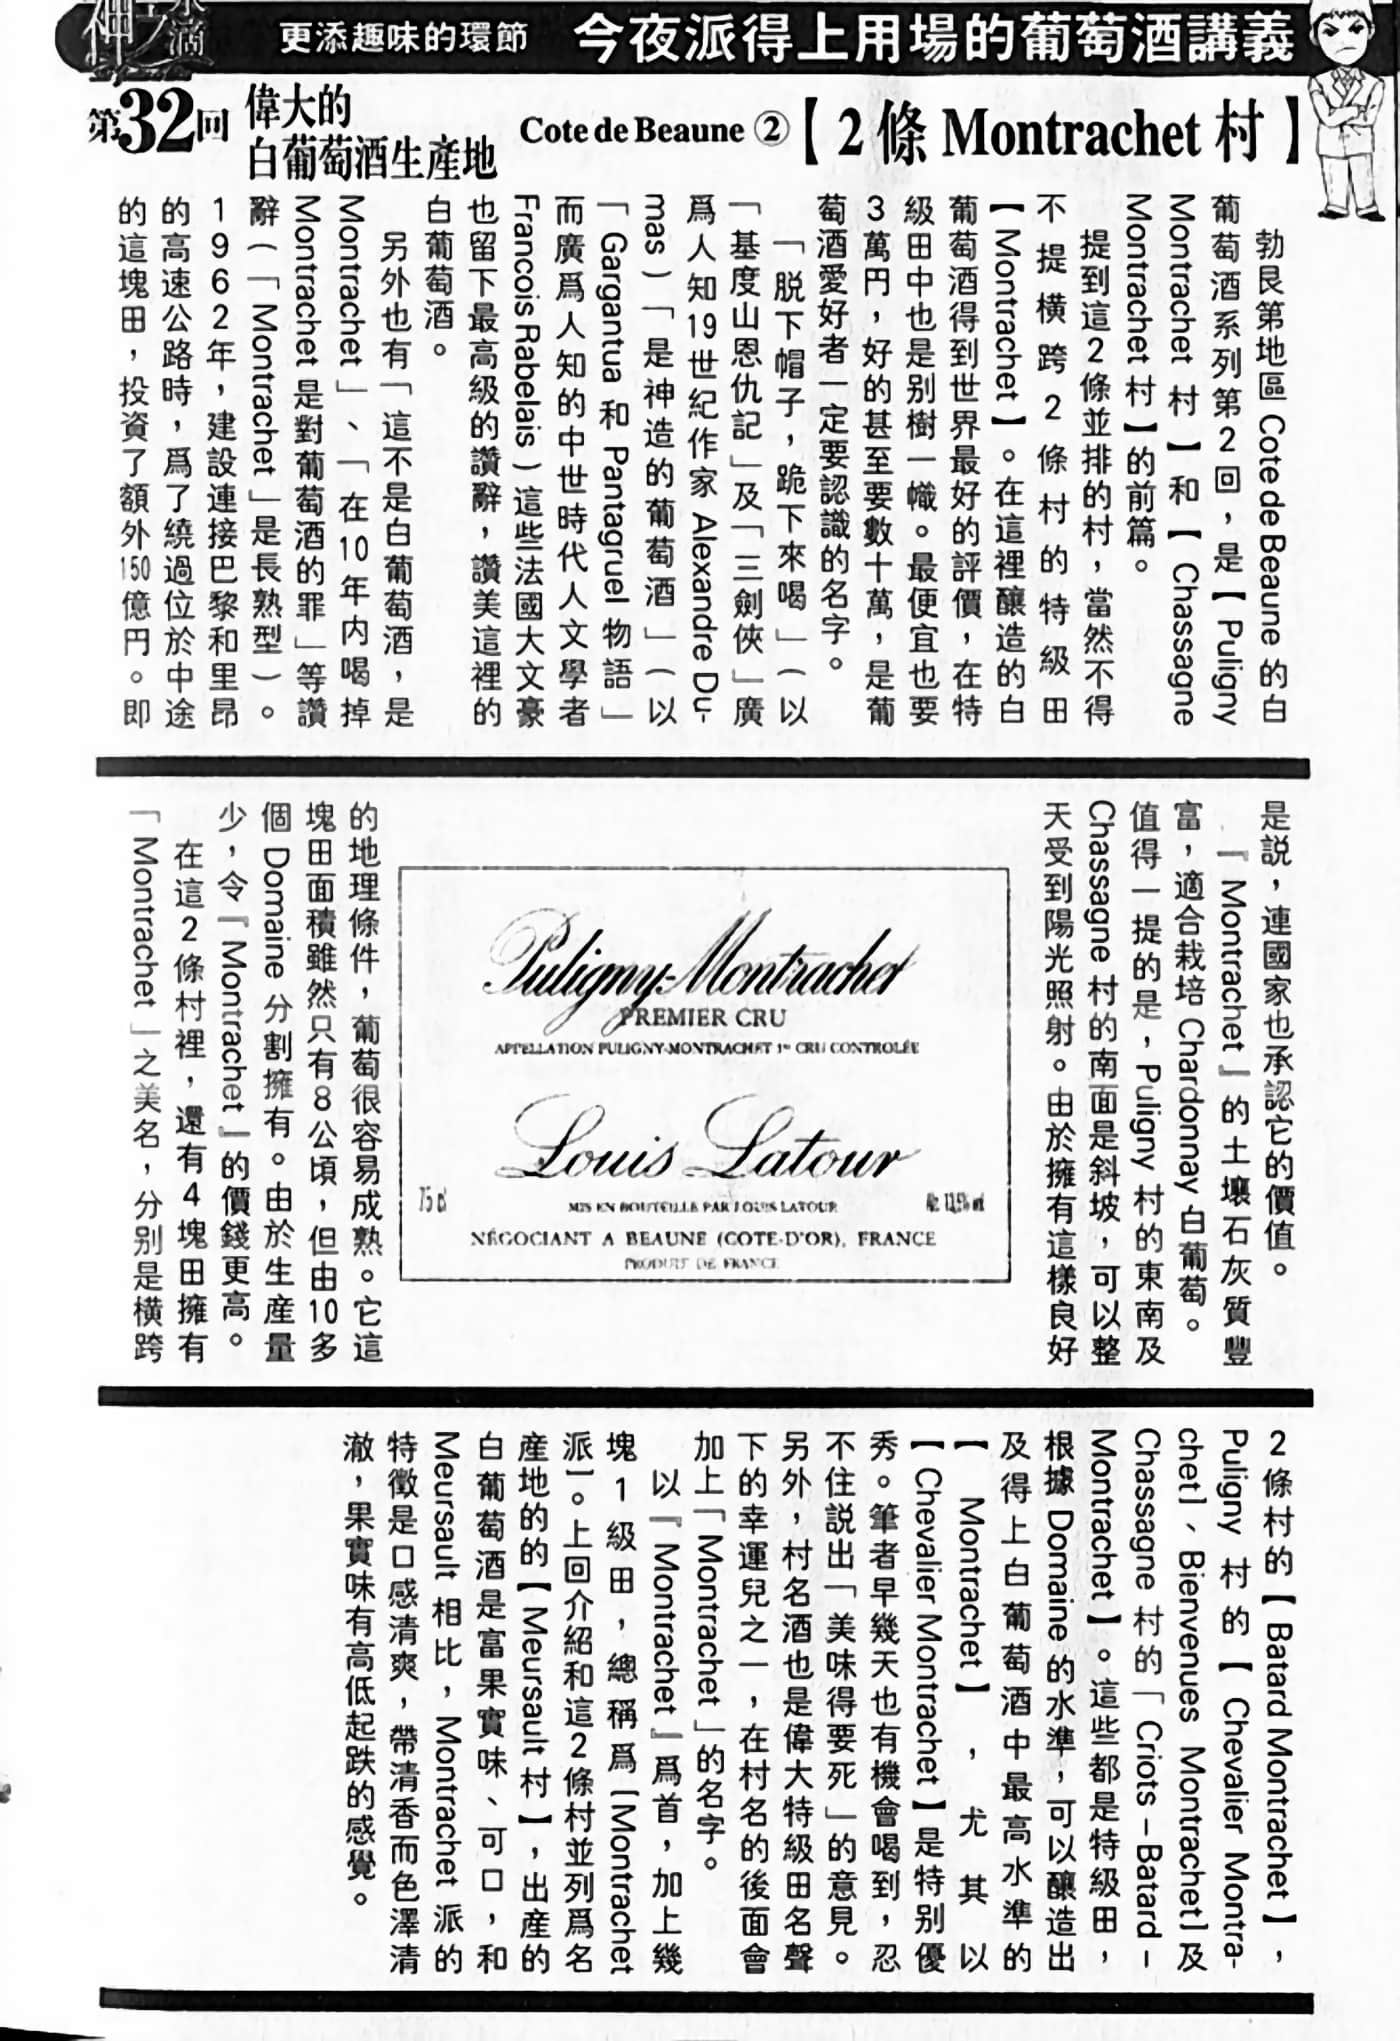 神之水滴
更添趣味的環節 今夜派得上用場的葡萄酒講義
第32回 偉大的
白葡萄酒生產地
Cote de Beaune ②【2條 Montrachet 村】
勃艮第地區 Cote de Beaune 的白
葡萄酒系列第2回，是【Puligny
Montrachet 村】和【Chassagne
Montrachet 村】的前篇。
提到這2條並排的村，當然不得
不提橫跨2條村的特級田
【Montrachet】。在這裡釀造的白
葡萄酒得到世界最好的評價，在特
級田中也是別樹一幟。最便宜也要
3萬円，好的甚至要數十萬，是葡
萄酒愛好者一定要認識的名字。
「脫下帽子，跪下來喝」（以
「基度山恩仇記」及「三劍俠」廣
爲人知19世紀作家 Alexandre Du-
mas）「是神造的葡萄酒」（以
「Gargantua 和 Pantagruel 物語」
而廣爲人知的中世時代人文學者
Francois Rabelais）這些法國大文豪
也留下最高級的讚辭，讚美這裡的
白葡萄酒。
另外也有「這不是白葡萄酒，是
Montrachet」、「在10年内喝掉
Montrachet 是對葡萄酒的罪」等讚
辭（「Montrachet」是長熟型）。
1962年，建設連接巴黎和里昂
的高速公路時，爲了繞過位於中途
的這塊田，投資了額外150億円。即
是說，連國家也承認它的價值。
『Montrachet』的土壤石灰質豐
富，適合栽培 Chardonnay 白葡萄。
值得一提的是，Puligny 村的東南及
Chassagne 村的南面是斜坡，可以整
天受到陽光照射。由於擁有這樣良好
Puligny-Montrachet
PREMIER CRU
APPELLATION PULIGNY-MONTRACHET 1er CRU CONTROLÉE
Louis Latour
75 cl
MIS EN BOUTEILLE PAR LOUIS LATOUR
Alc. 13,5% vol
NÉGOCIANT A BEAUNE (COTE-D'OR), FRANCE
PRODUIT DE FRANCE
的地理條件，葡萄很容易成熟。它這
塊田面積雖然只有8公頃，但由10多
個 Domaine 分割擁有。由於生產量
少，令『Montrachet』的價錢更高。
在這2條村裡，還有4塊田擁有
「Montrachet」之美名，分別是橫跨
2條村的【Batard Montrachet】，
Puligny 村的【Chevalier Montra-
chet】、Bienvenues Montrachet】及
Chassagne 村的「Criots－Batard－
Montrachet】。這些都是特級田，
根據 Domaine 的水準，可以釀造出
及得上白葡萄酒中最高水準的
【Montrachet】，尤其以
【Chevalier Montrachet】是特別優
秀。筆者早幾天也有機會喝到，忍
不住說出「美味得要死」的意見。
另外，村名酒也是偉大特級田名聲
下的幸運兒之一，在村名的後面會
加上「Montrachet」的名字。
以『Montrachet』爲首，加上幾
塊1級田，總稱爲【Montrachet
派】。上回介紹和這2條村並列爲名
產地的的【Meursault 村】，出產的
白葡萄酒是富果實味、可口，和
Meursault 相比，Montrachet 派的
特徵是口感清爽，帶清香而色澤清
澈，果實味有高低起跌的感覺。